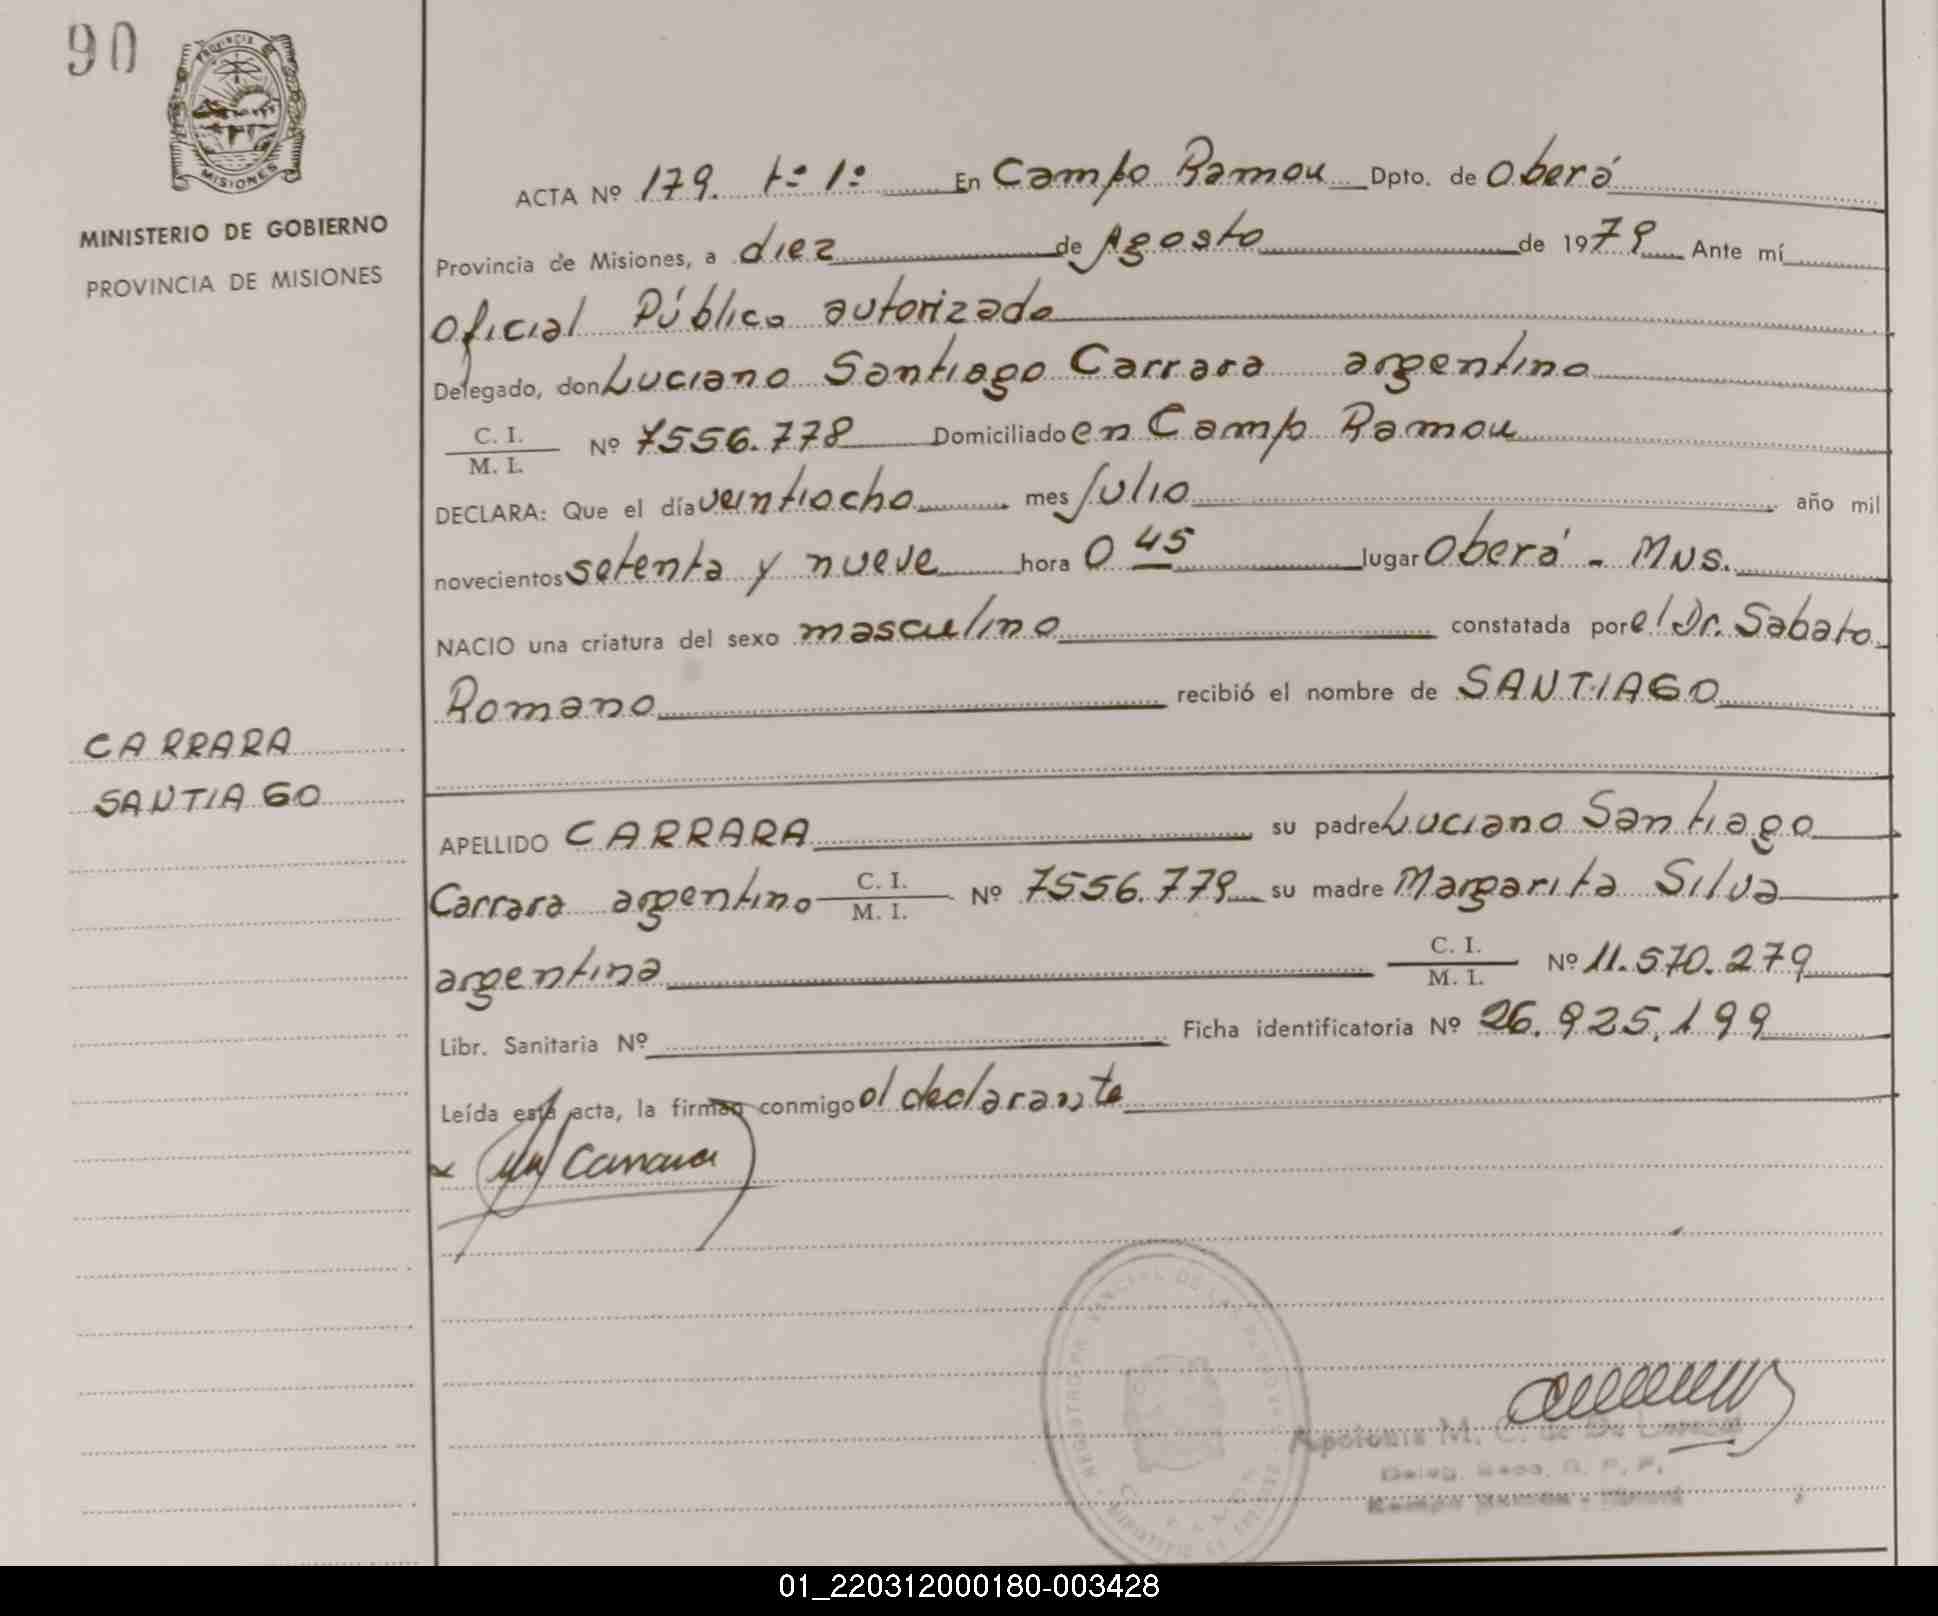 90
PROVINCIA DE
MISIONES
MINISTERIO DE GOBIERNO
PROVINCIA DE MISIONES
CARRARA
SANTIAGO
ACTA Nº 179. tº 1º En Campo Ramou Dpto. de Oberá
Provincia de Misiones, a diez de Agosto de 1979 Ante mí
Oficial Público autorizado
Delegado, don Luciano Santiago Carrara argentino
C. I.
M. I. Nº 7556.778 Domiciliado en Camp Ramou
DECLARA: Que el día veintiocho mes Julio año mil
novecientos setenta y nueve hora 0 45 lugar Oberá - Mns.
NACIO una criatura del sexo masculino constatada por el Dr. Sabato
Romano recibió el nombre de SANTIAGO
APELLIDO CARRARA su padre Luciano Santiago
Carrara argentino C. I. M. I. Nº 7556.779 su madre Margarita Silva
argentina C. I. M. I. Nº 11.570.279
Libr. Sanitaria Nº Ficha identificatoria Nº 26.925.199
Leída esta acta, la firman conmigo el declarante
Carrara
Apolonia M. C. de De
01_220312000180-003428